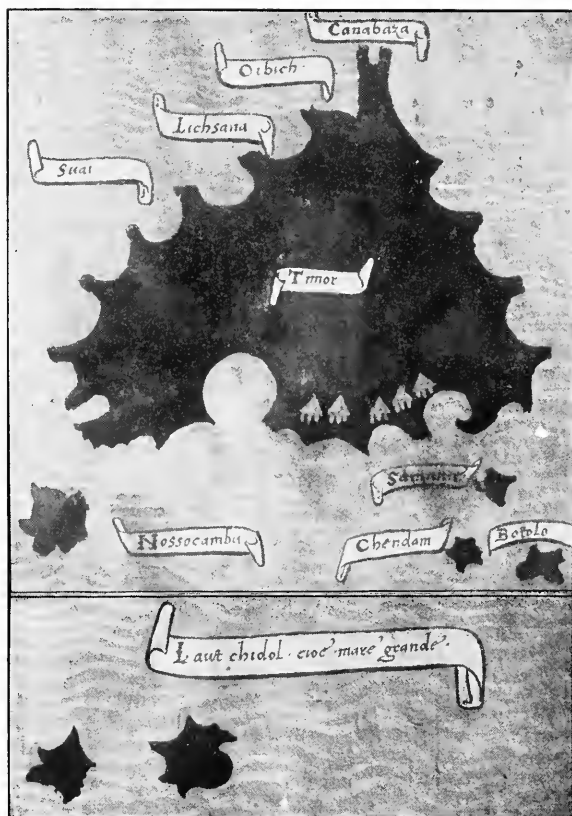 Canabaza
Oibich
Lichsana
Suai
Timor
Nossocamba
Chendam
Botolo
Laut chidol · cioe mare grande ·